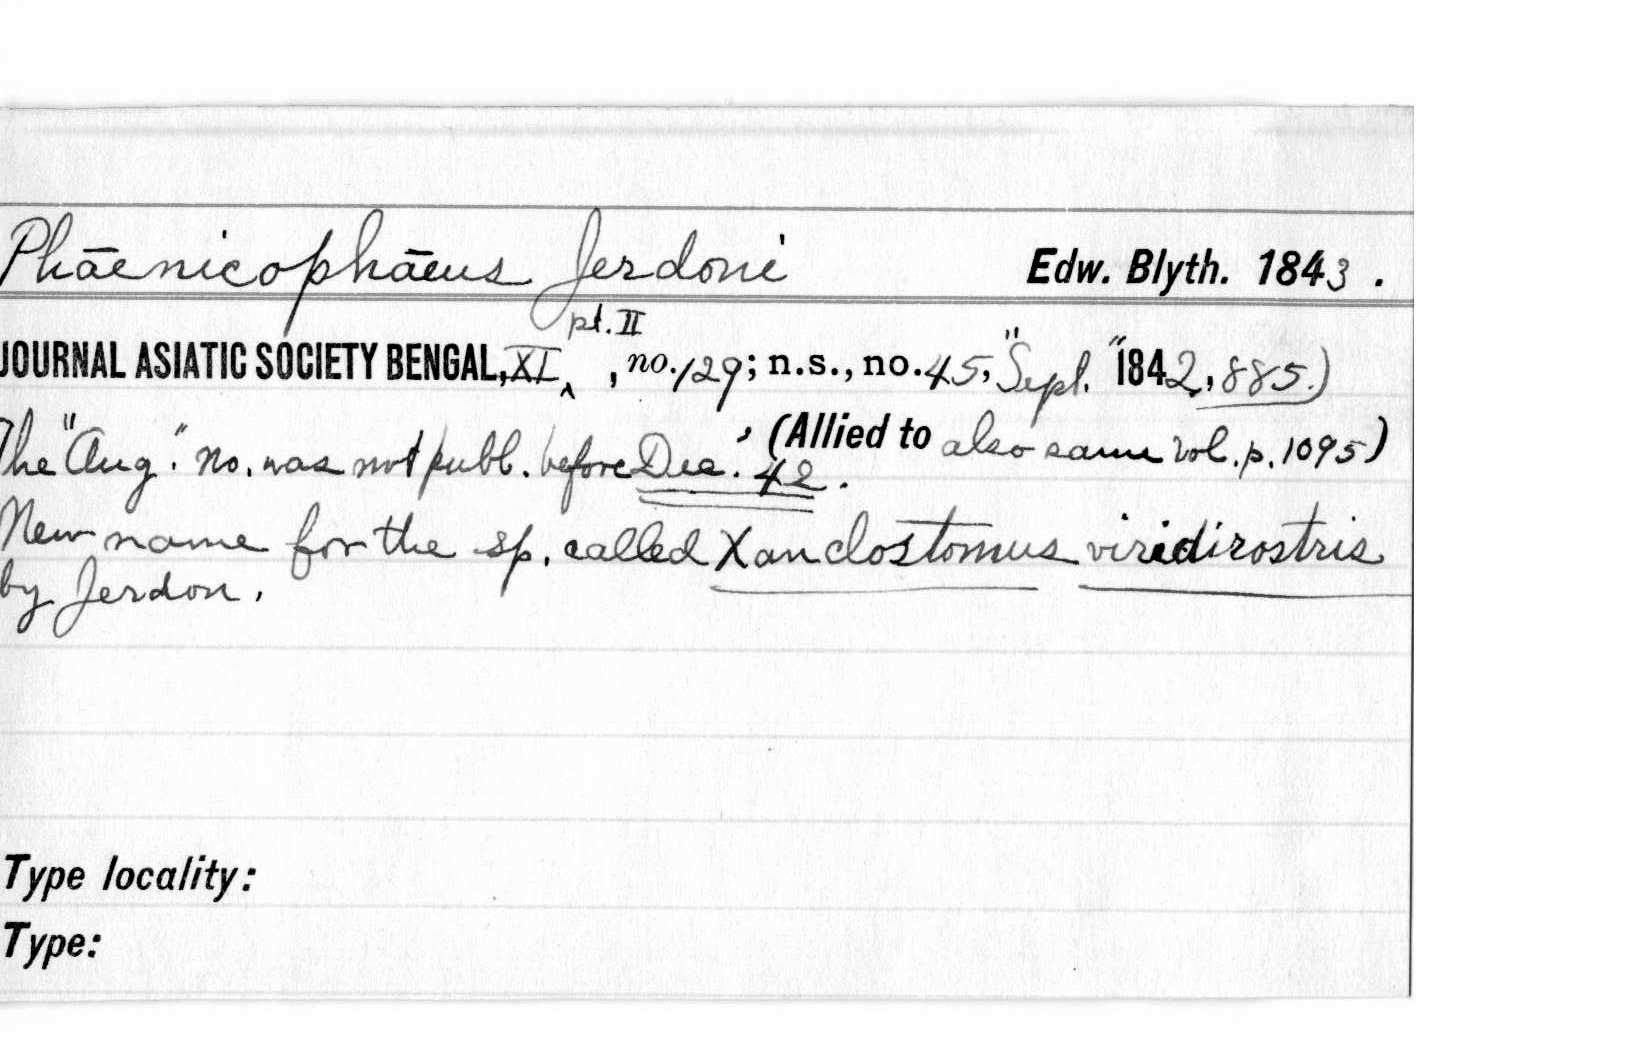 Phāenicophāeus Jerdoni Edw. Blyth. 1843.
pt. II
JOURNAL ASIATIC SOCIETY BENGAL, XI ‸ , no. 129; n.s., no. 45, "Sept." 1842, 885.)
(Allied to also same vol. p. 1095)
The "Aug." no. was not publ. before Dec. 42.
New name for the sp. called Xanclostomus viridirostris
by Jerdon.
Type locality:
Type: